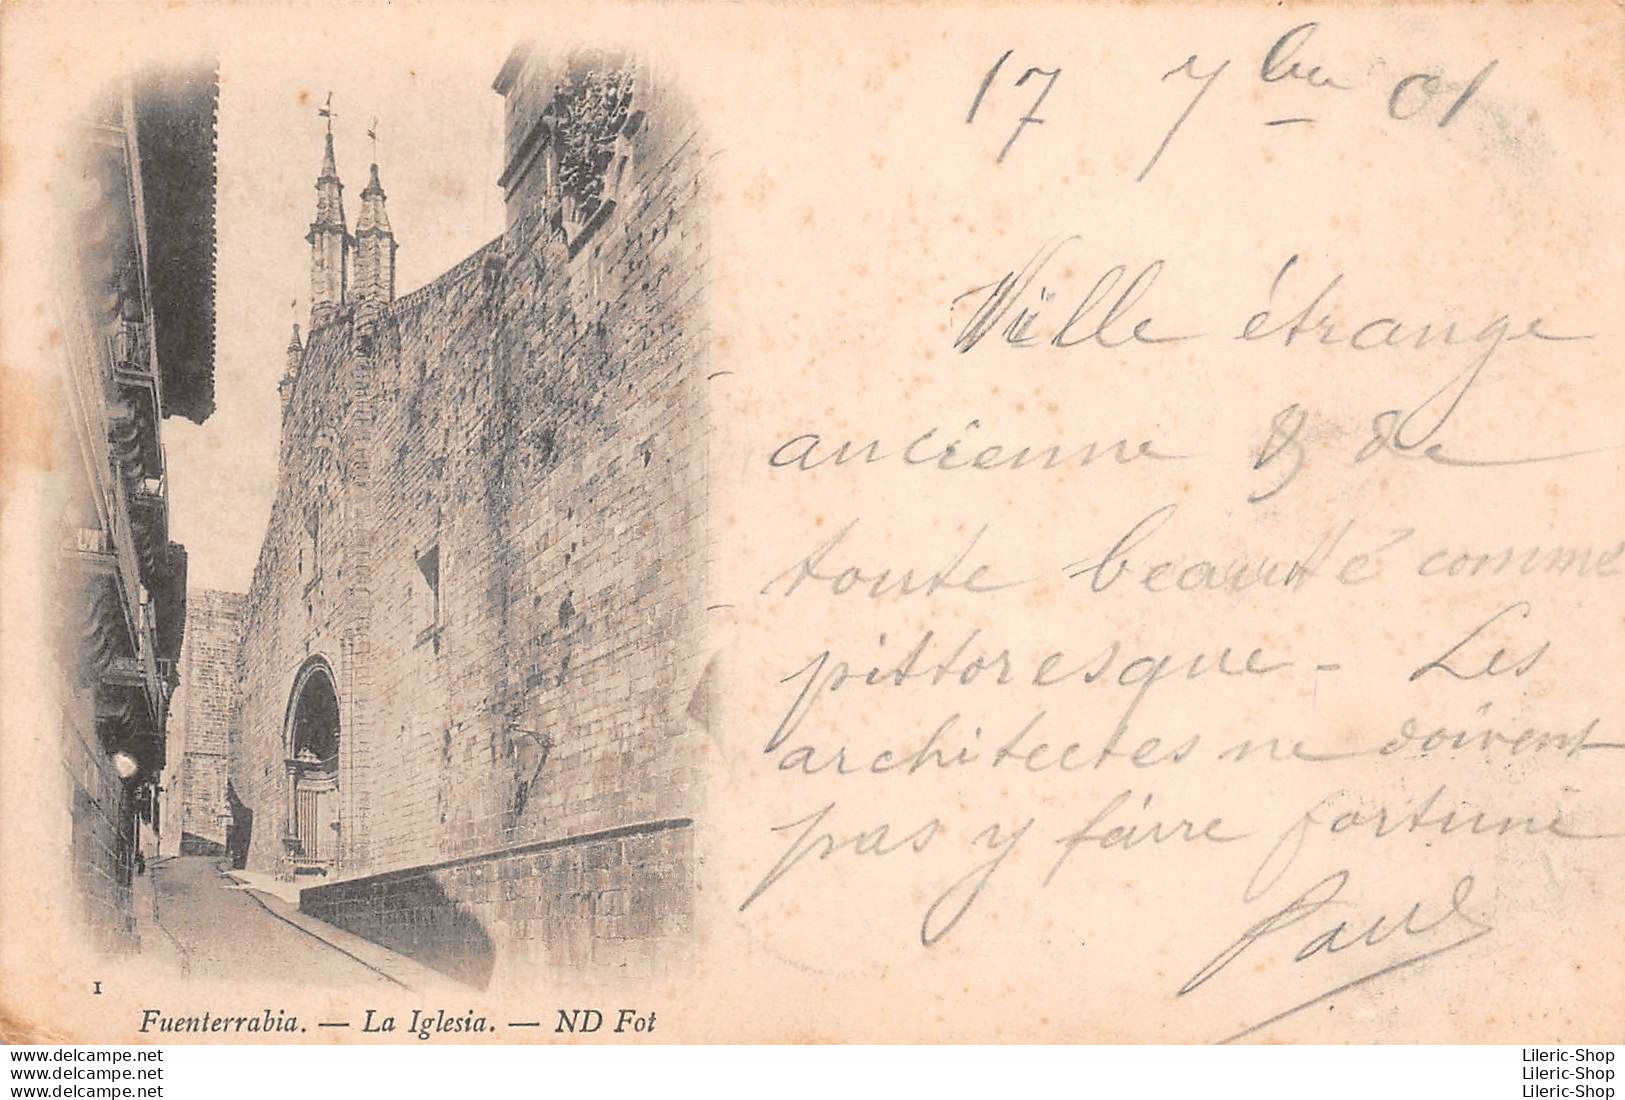 17 7bre 01
Ville étrange
ancienne & de
toute beauté comme
pittoresque - Les
architectes ne doivent
pas y faire fortune
Paul
1
Fuenterrabia. — La Iglesia. — ND Fot
www.delcampe.net
www.delcampe.net
www.delcampe.net
Lileric-Shop
Lileric-Shop
Lileric-Shop